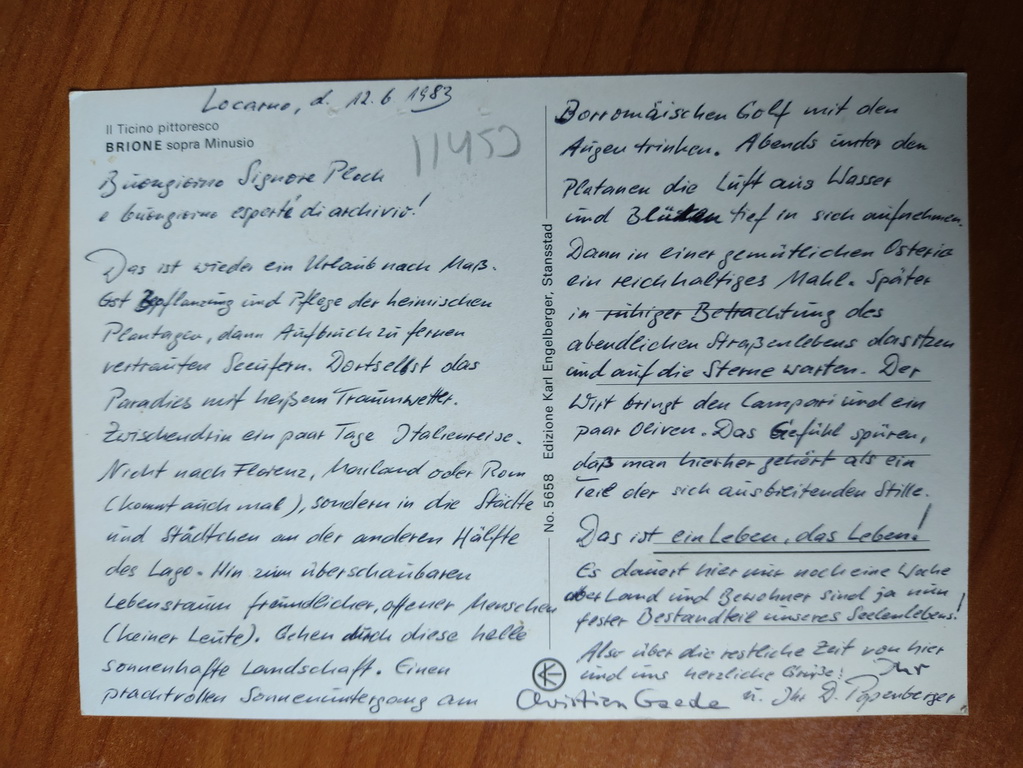 Locarno, d. 12.6.1983
Il Ticino pittoresco
BRIONE sopra Minusio
11450
Buongiorno Signore Ploch
e buongiorno esperté di archivio!
Das ist wieder ein Urlaub nach Maß.
Erst Bepflanzung und Pflege der heimischen
Plantagen, dann Aufbruch zu fernen
vertrauten Seeufern. Dortselbst das
Paradies mit heißem Traumwetter.
Zwischendrin ein paar Tage Italienreise.
Nicht nach Florenz, Mailand oder Rom
(kommt auch mal), sondern in die Städte
und Städtchen an der anderen Hälfte
des Lago. Hin zum überschaubaren
Lebensraum freundlicher, offener Menschen
(keiner Leute). Gehen durch diese helle
sonnenhafte Landschaft. Einen
prachtvollen Sonnenuntergang am
No. 5658 Edizione Karl Engelberger, Stansstad
Borromäischen Golf mit den
Augen trinken. Abends unter den
Platanen die Luft aus Wasser
und Blüten tief in sich aufnehmen.
Dann in einer gemütlichen Osteria
ein reichhaltiges Mahl. Später
in ruhiger Betrachtung des
abendlichen Straßenlebens dasitzen
und auf die Sterne warten. Der
Wirt bringt den Campari und ein
paar Oliven. Das Gefühl spüren,
daß man hierher gehört als ein
Teil der sich ausbreitenden Stille.
Das ist ein Leben, das Leben!
Es dauert hier nur noch eine Woche
aber Land und Bewohner sind ja nun
fester Bestandteil unseres Seelenlebens!
Also über die restliche Zeit von hier
und uns herzliche Grüße! Ihr
Christien Gaede u. Ihr D. Popenberger